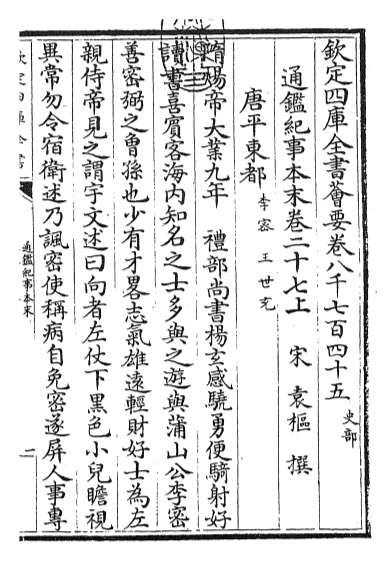 欽定四庫全書薈要卷八千七百四十五 史部
通鑑紀事本末卷二十七上 宋 袁樞 撰
唐平東都 李密 王世充
隋煬帝大業九年 禮部尚書楊玄感驍勇便騎射好
讀書喜賓客海内知名之士多與之遊與蒲山公李密
善密弼之曾孫也少有才畧志氣雄遠輕財好士為左
親侍帝見之謂宇文述曰向者左仗下黑色小兒瞻視
異常勿令宿衛述乃諷密使稱病自免密遂屏人事專
通鑑紀事本末